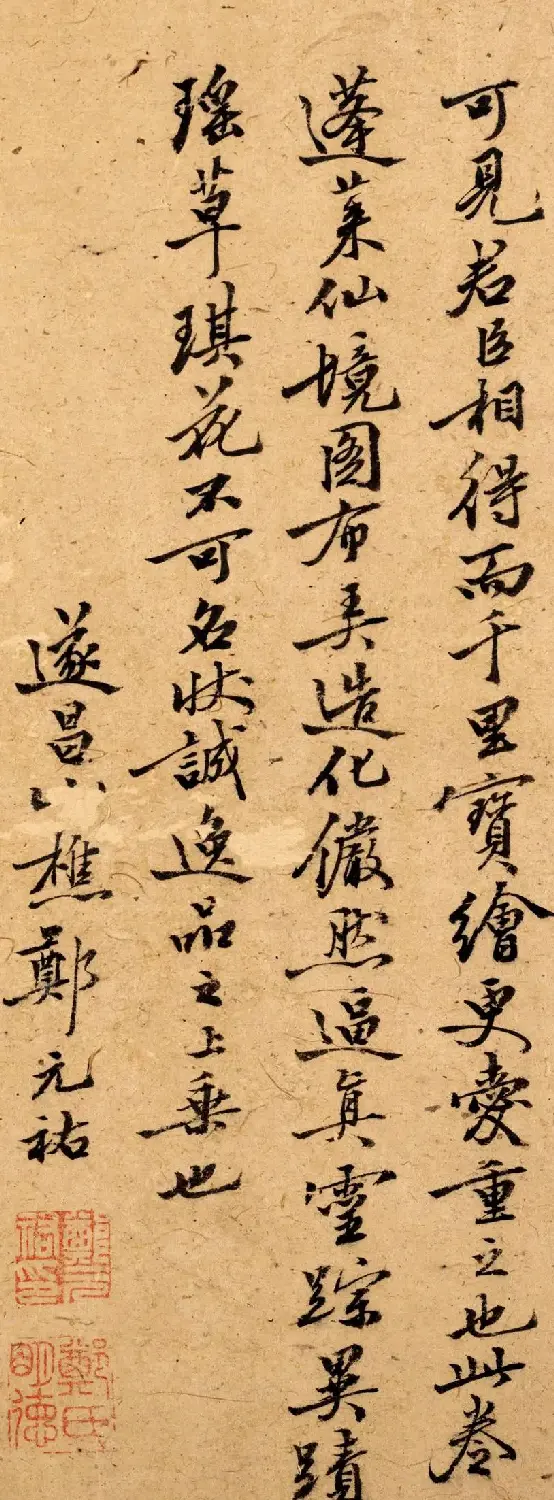 可見君臣相得而千里寶繪更愛重之也此卷
蓬萊仙境圖布弄造化儼然逼真靈踪異蹟
瑶草琪花不可名狀誠逸品之上乗也
遂昌山樵鄭元祐
鄭元祐印
鄭氏明德